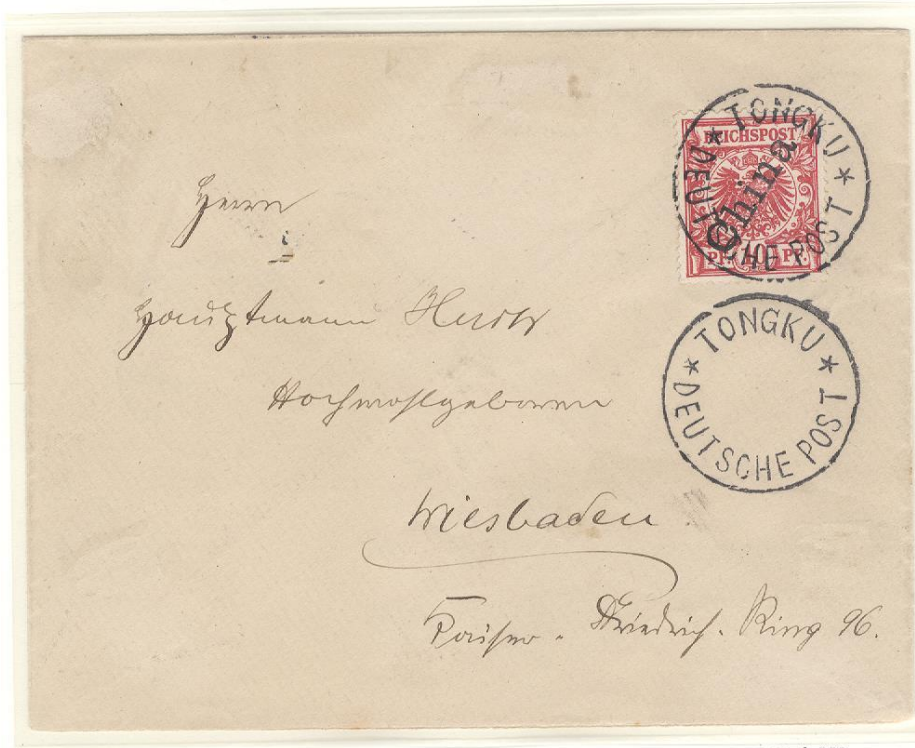 TONGKU
DEUTSCHE POST
REICHSPOST
China
10
PF. PF.
TONGKU
DEUTSCHE POST
Herrn
Hauptmann
Hochwohlgeboren
Wiesbaden
Kaiser-Friedrich-Ring 96.